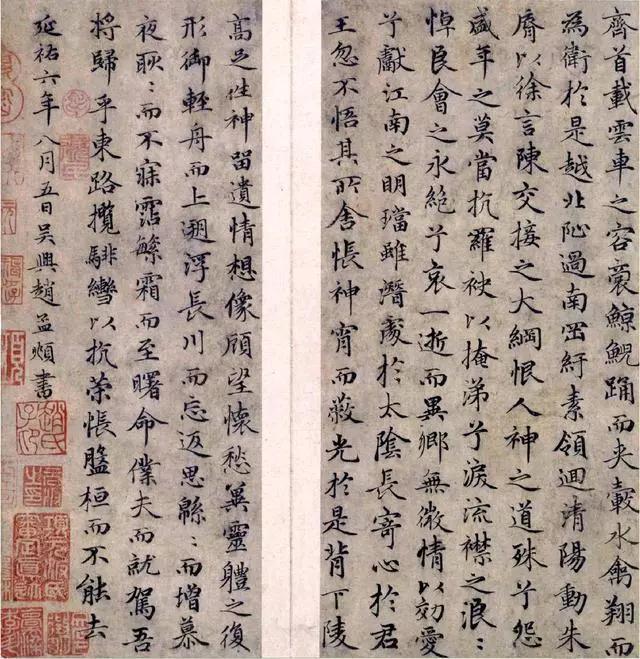 齊首載雲車之容裔鯨鯢踊而夾轂水禽翔而
為衛於是越北沚過南岡紆素領迴清陽動朱
脣以徐言陳交接之大綱恨人神之道殊兮怨
盛年之莫當抗羅袂以掩涕兮淚流襟之浪〻
悼良會之永絕兮哀一逝而異鄉無微情以効愛
兮獻江南之明璫雖潛處於太陰長寄心於君
王忽不悟其所舍悵神宵而蔽光於是背下陵
高足往神留遺情想像顧望懷愁冀靈軆之復
形御輕舟而上遡浮長川而忘返思緜〻而增慕
夜耿〻而不寐霑繁霜而至曙命僕夫而就駕吾
將歸乎東路攬騑轡以抗策悵盤桓而不能去
延祐六年八月五日吳興趙孟頫書
趙氏子昂